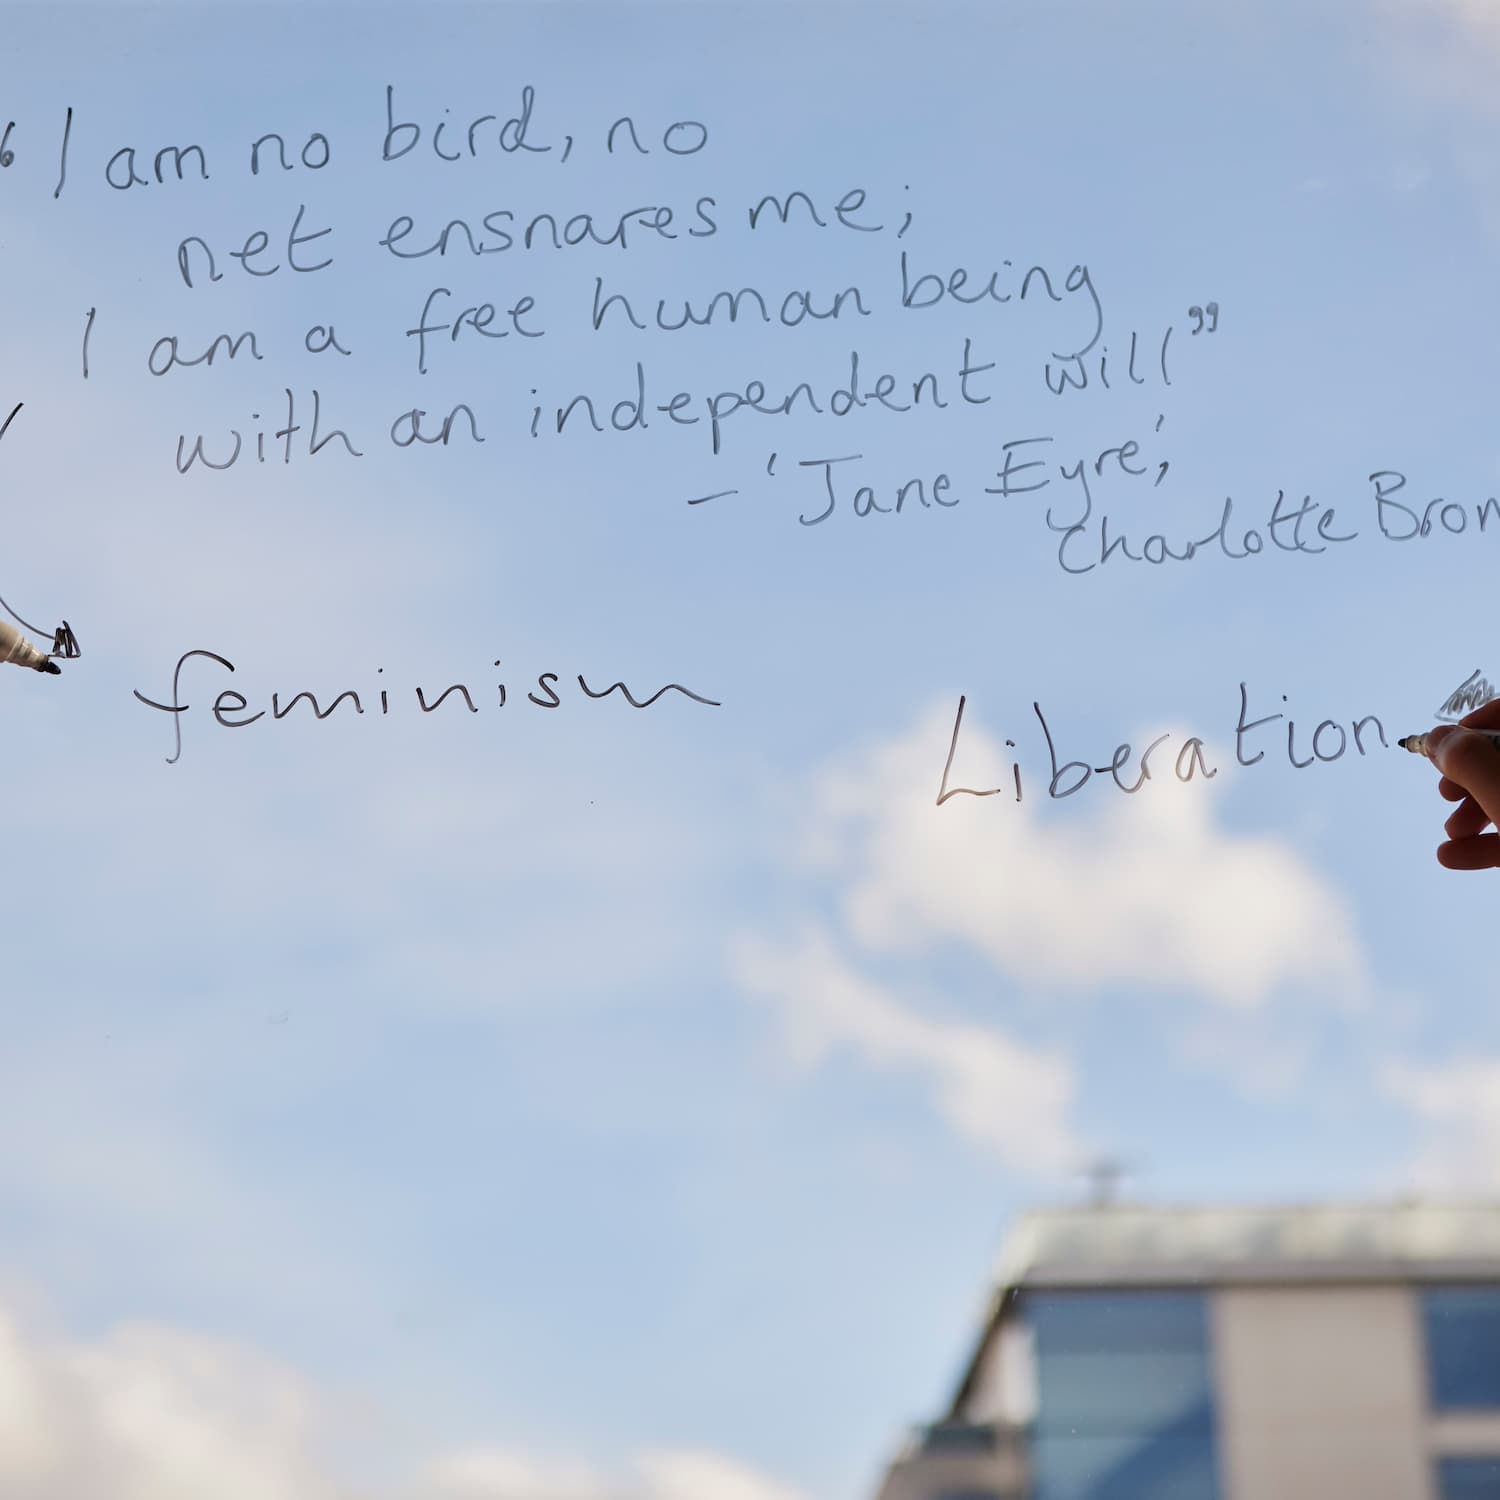 “I am no bird, no
net ensnares me;
I am a free human being
with an independent will”
– 'Jane Eyre',
Charlotte Bron
feminism
Liberation